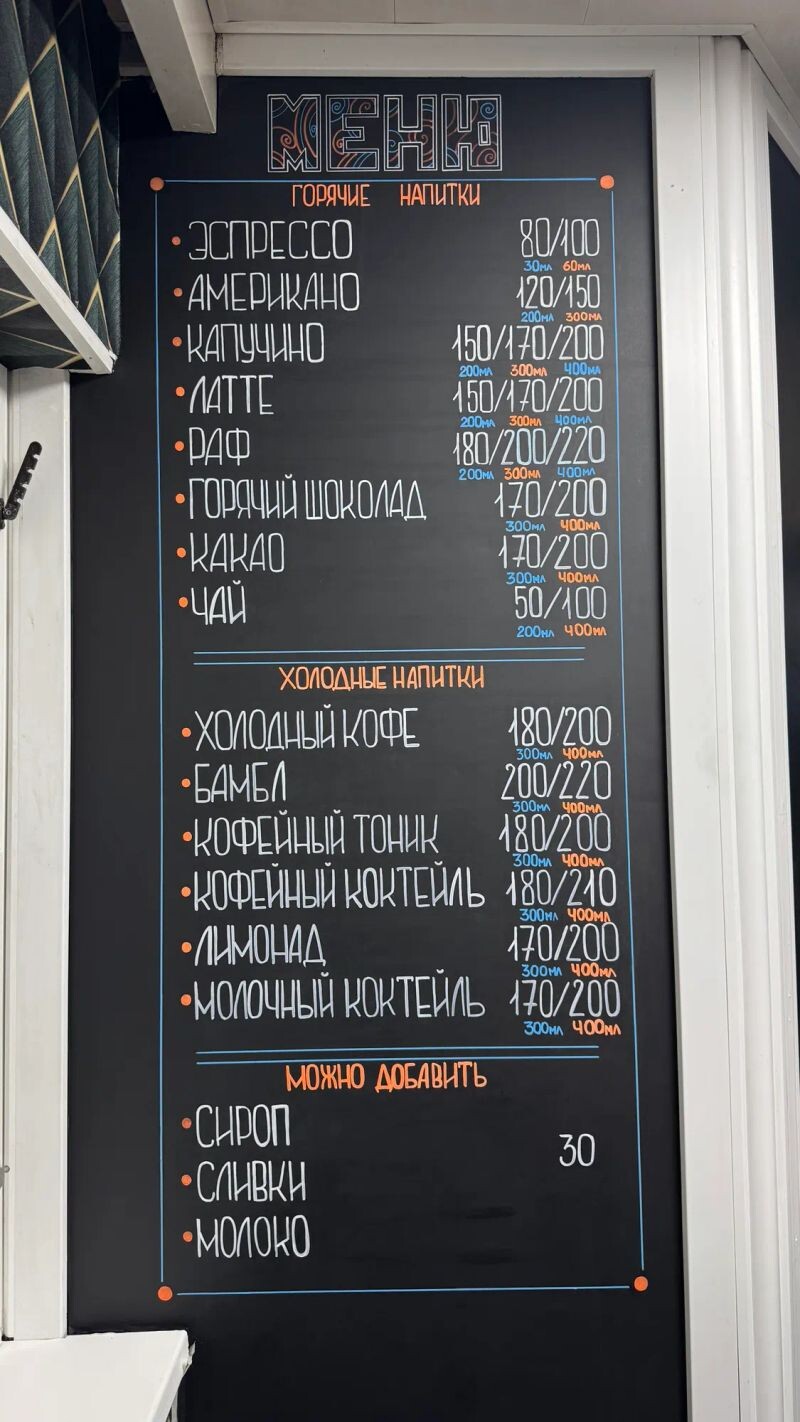 МЕНЮ
ГОРЯЧИЕ НАПИТКИ
ЭСПРЕССО 80/100
30мл 60мл
АМЕРИКАНО 120/150
200мл 300мл
КАПУЧИНО 150/170/200
200мл 300мл 400мл
ЛАТТЕ 150/170/200
200мл 300мл 400мл
РАФ 180/200/220
200мл 300мл 400мл
ГОРЯЧИЙ ШОКОЛАД 170/200
300мл 400мл
КАКАО 170/200
300мл 400мл
ЧАЙ 50/100
200мл 400мл
ХОЛОДНЫЕ НАПИТКИ
ХОЛОДНЫЙ КОФЕ 180/200
300мл 400мл
БАМБЛ 200/220
300мл 400мл
КОФЕЙНЫЙ ТОНИК 180/200
300мл 400мл
КОФЕЙНЫЙ КОКТЕЙЛЬ 180/210
300мл 400мл
ЛИМОНАД 170/200
300мл 400мл
МОЛОЧНЫЙ КОКТЕЙЛЬ 170/200
300мл 400мл
МОЖНО ДОБАВИТЬ
СИРОП
30
СЛИВКИ
МОЛОКО